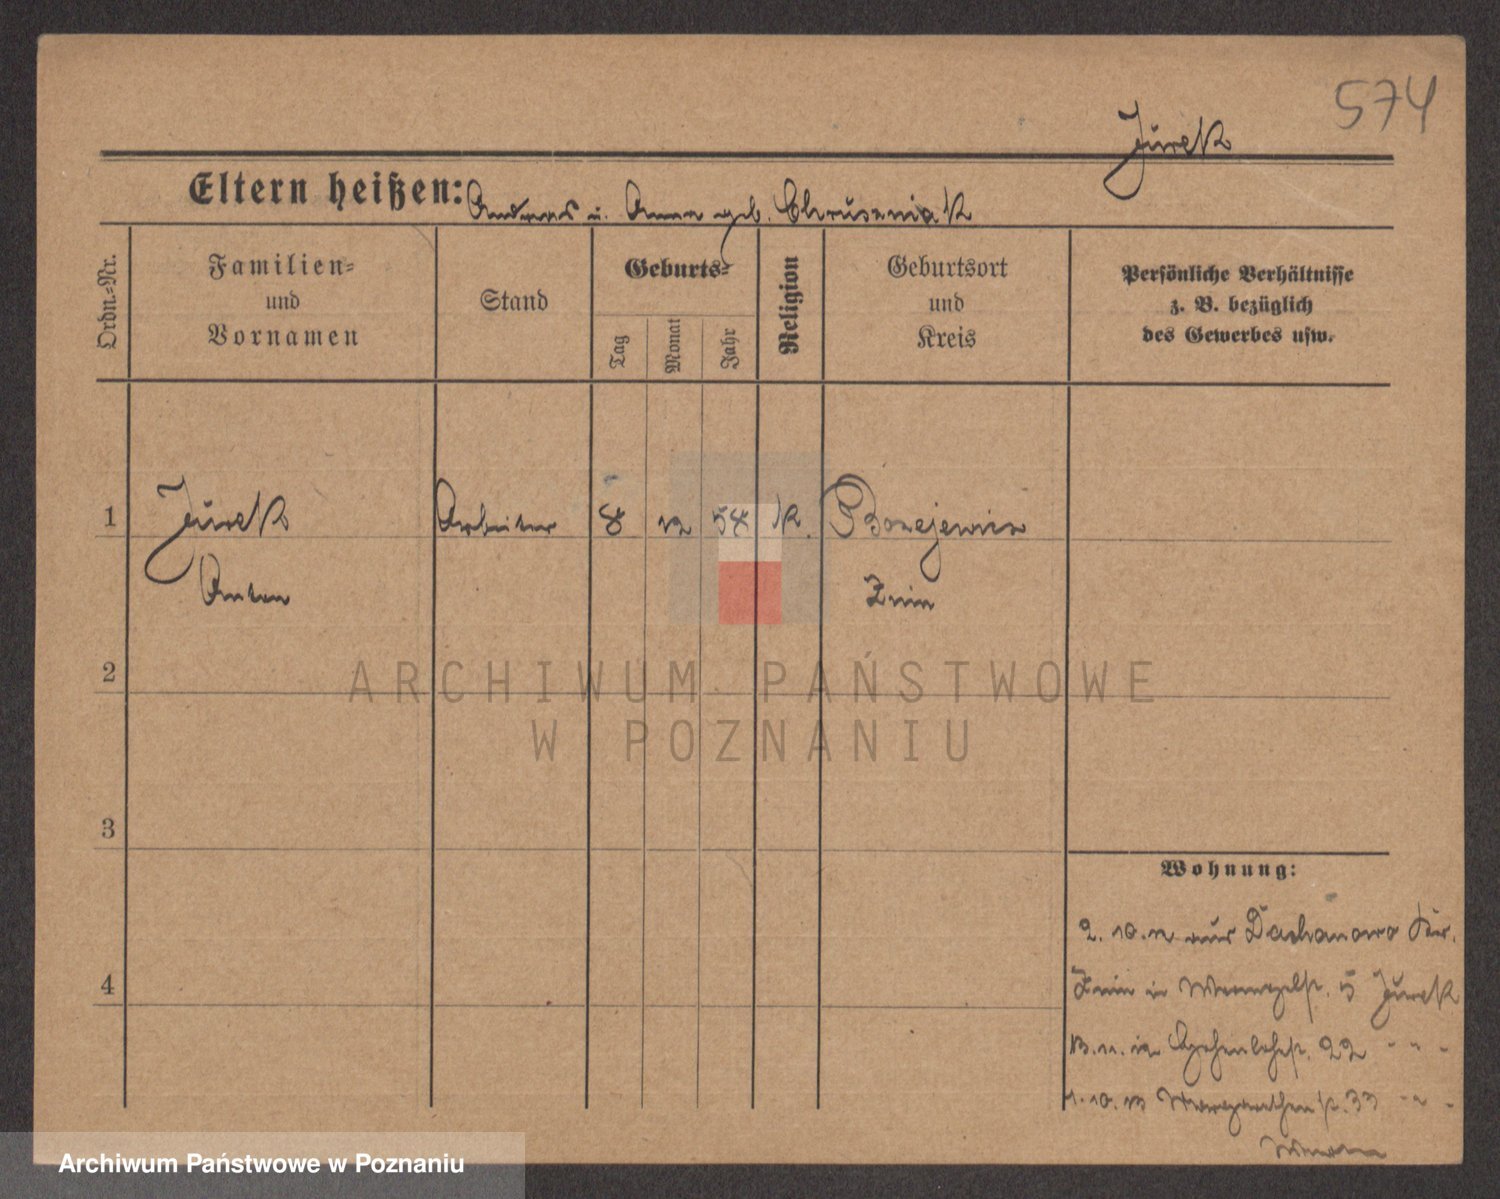 574
Jurek
Eltern heißen: Andreas u. Anna geb. Chruseniak
Ordn.=Nr.
Familien=
und
Vornamen
Stand
Geburts=
Tag
Monat
Jahr
Religion
Geburtsort
und
Kreis
Persönliche Verhältnisse
z. B. bezüglich
des Gewerbes usw.
1
Jurek Arbeiter 8 12 58 K. Bozejewice
Anton Znin
2
ARCHIWUM PAŃSTWOWE
W POZNANIU
3
4
Wohnung:
2. 10. 12 aus Dachanowo Kr.
Znin in 5 Jurek
13. 11. 12 22 " " "
1. 10. 13 33 " " "
Archiwum Państwowe w Poznaniu